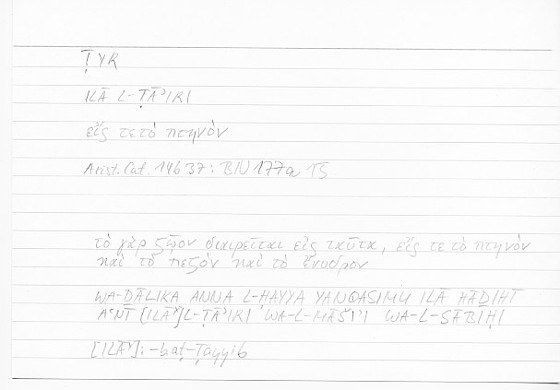 ṬYR
ILĀ L-ṬĀʾIRI
εἴς τε τὸ πτηνὸν
Arist. Cat. 14b37: BN 177a 15
τὸ γὰρ ζῷον διαιρεῖται εἰς ταῦτα, εἴς τε τὸ πτηνὸν
καὶ τὸ πεζὸν καὶ τὸ ἔνυδρον
WA-ḎĀLIKA ANNA L-ḤAYYA YANQASIMU ILĀ HĀḎIHĪ
AʿNĪ [ILĀˣ] L-ṬĀʾIRI WA-L-MĀŠIʾI WA-L-SĀBIḤI
[ILĀˣ]: -baṭ-Ṭayyib